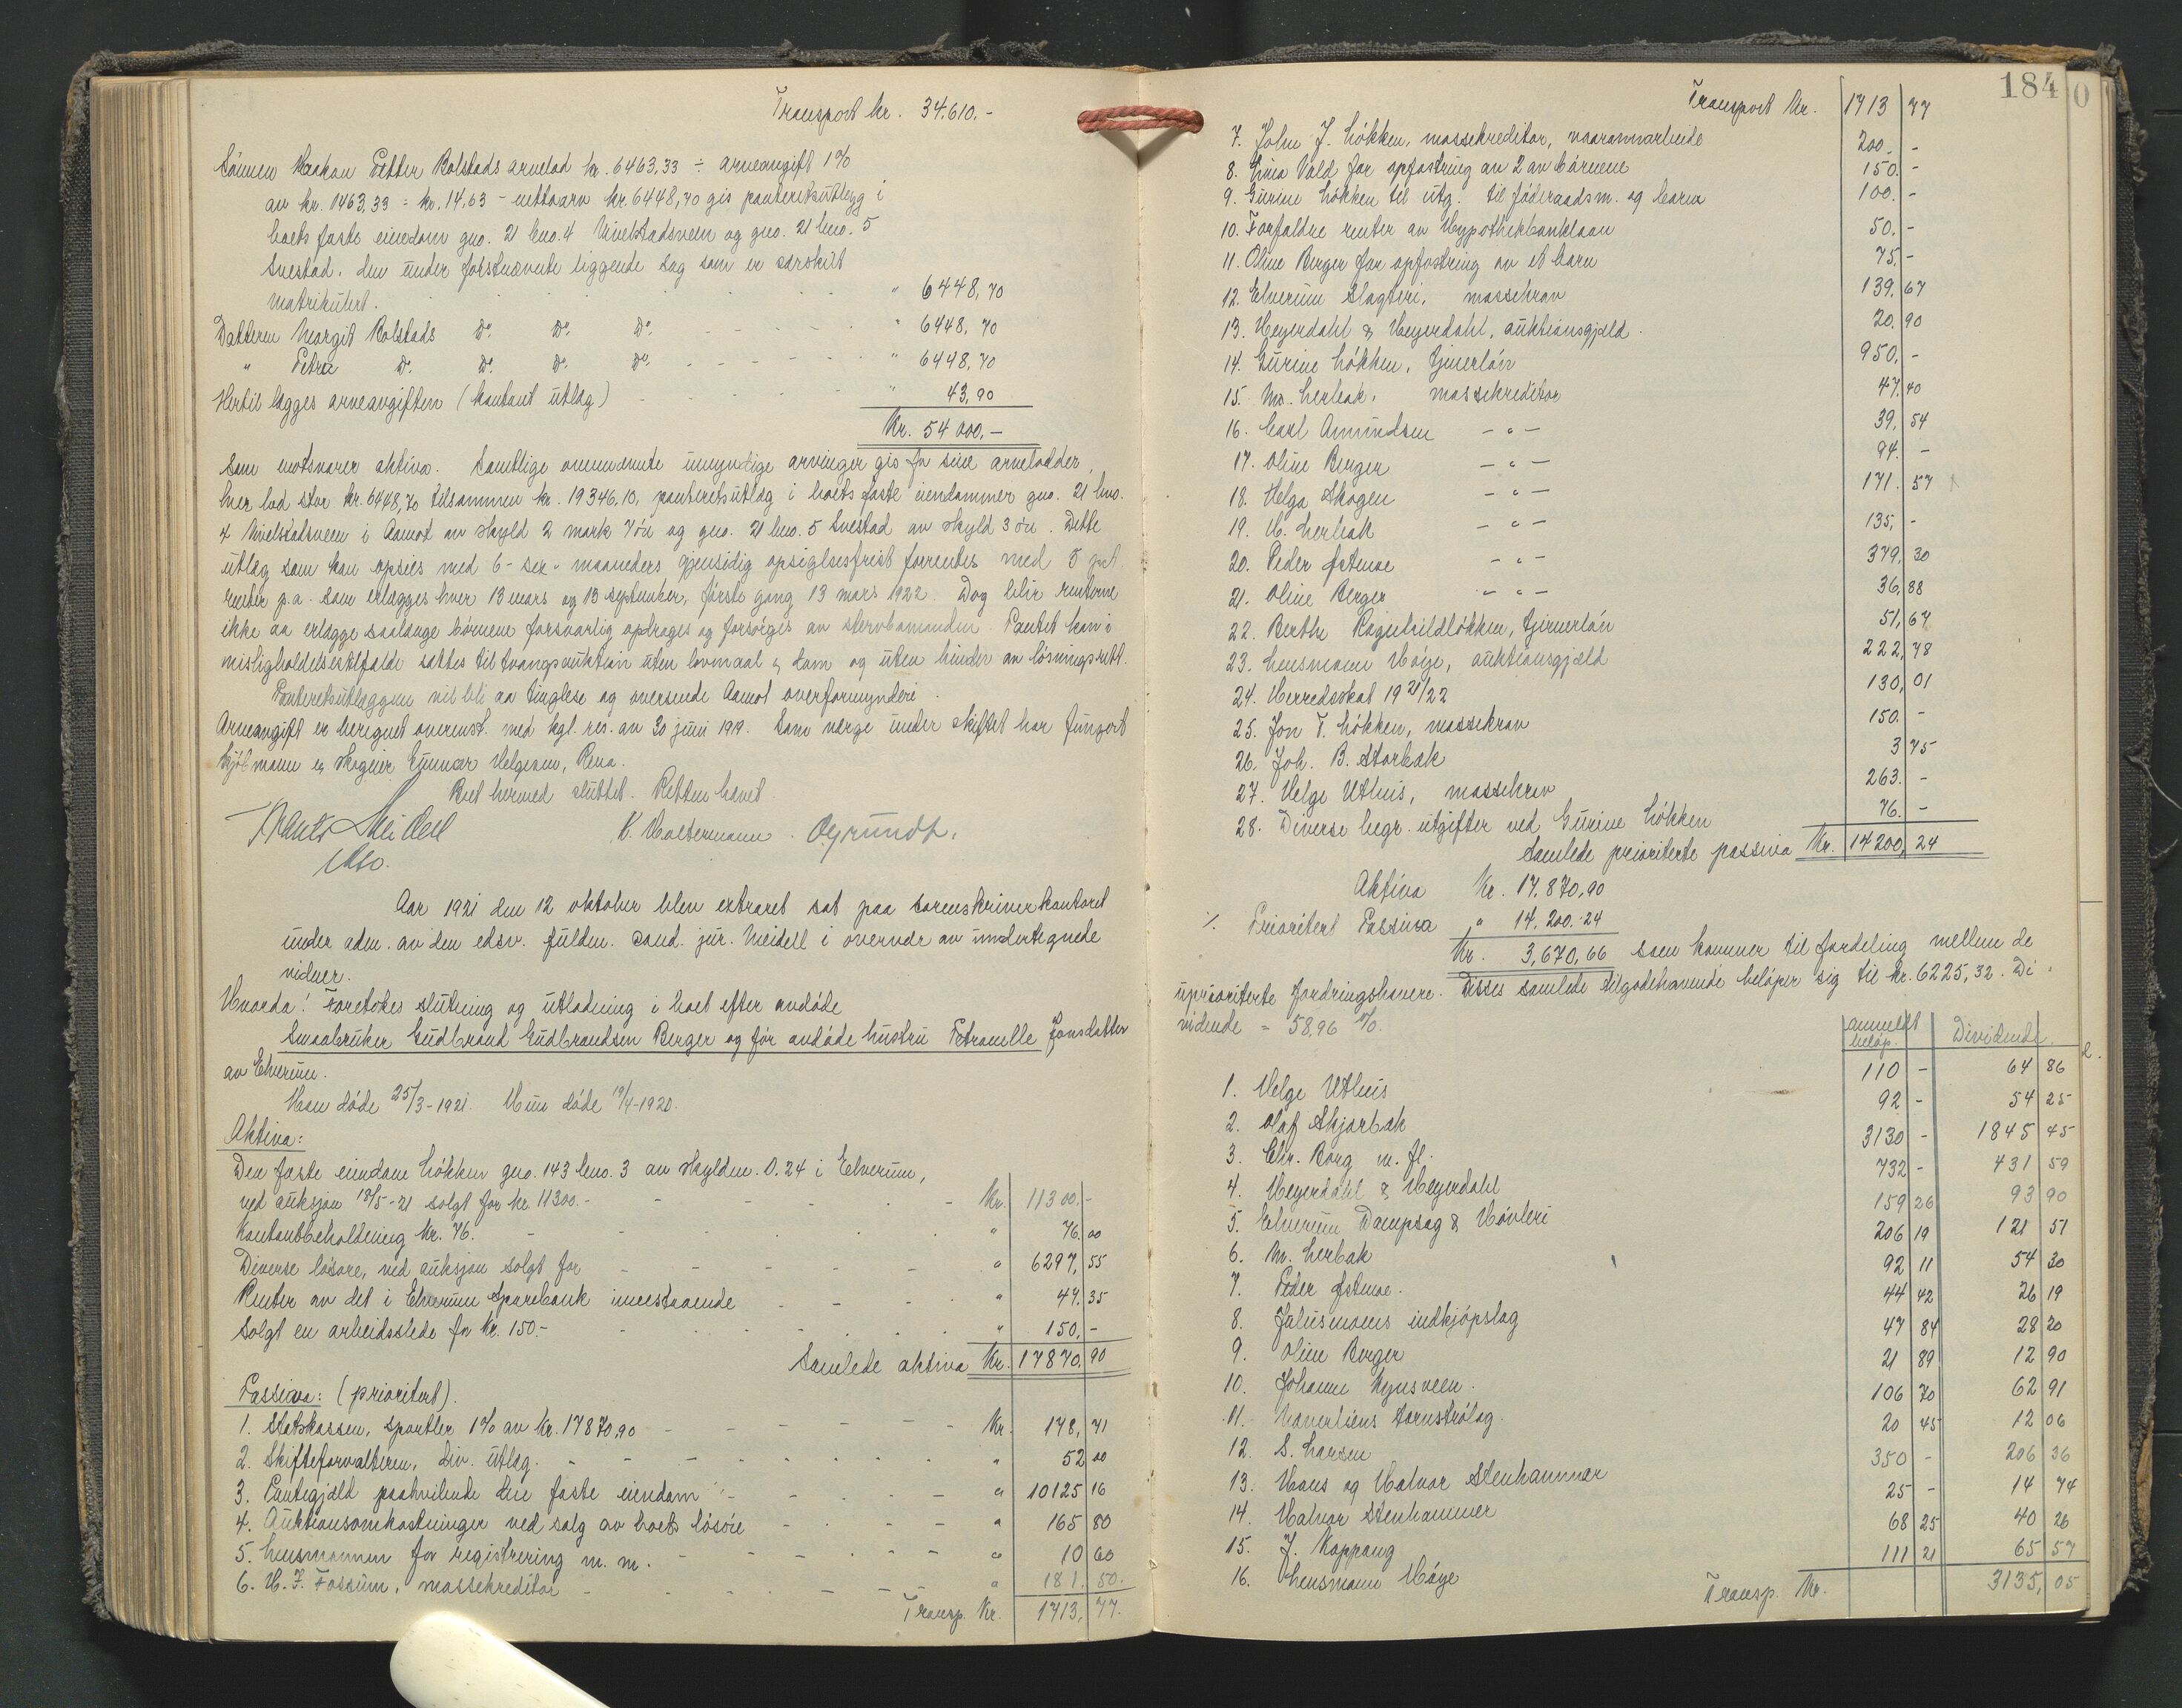 Transport kr. 34.610.-
Sönnen Haakon Petter Rolstads arvelod kr. 6463,33 ÷ arveavgift 1%
av kr. 1463,33 = kr. 14,63 - nettoarv kr. 6448,70 gis panteretsutlegg i
boets faste eiendom gno. 21 bno. 4 og gno. 21 bno. 5
den under förstnevnte liggende sag som er særskilt
matrikulert. " 6448,70
Datteren Margit Rolstads Do. Do. Do. " 6448,70
" Petra Do. Do. Do. Do. " 6448,70
Hertil lægges arveavgiften (kontant utlæg) " 43,90
Kr. 54 000,-
som motsvarer aktiva. Samtlige ovennævnte umyndige arvinger gis for sine arvelodder,
hver lod stor kr. 6448,70 tilsammen kr. 19346,10, panteretsutlæg i boets faste eiendommer gno. 21 bno.
4 i Aamot av skyld 2 mark 7 öre og gno. 21 bno. 5 av skyld 3 öre. Dette
utlæg som kan opsies med 6 - sex - maaneders gjensidig opsigelsesfrist forrentes med 5 pct.
renter p.a. som erlægges hver 13 mars og 13 september, förste gang 13 mars 1922. Dog blir renterne
ikke aa erlægge saalænge börnene forsvarlig opdrages og forsörges av stervbomanden. Pantet kan i
misligholdelsestilfælde sættes til tvangsauktion uten lovmaal & dom og uten hinder av lösningsrett.
Panteretsutlæggene vil bli aa tinglese og oversende Aamot overformynderi.
Arveavgift er beregnet overenst. med kgl. res. av 30 juni 1919. Som værge under skiftet har fungert
kjöbmann og skogeier Gunnar Helgesen, Rena.
Boet hermed sluttet. Retten hævet.
Meidell K. Haltermann. O. Grundt.
Aar 1921 den 12 oktober blev extraret sat paa sorenskriverkontoret
under adm. av den edsv. fuldm. cand. jur. Meidell i overvær av undertegnede
vidner.
Hvorda! Foretokes slutning og utlodning i boet efter avdöde
Smaabruker Gudbrand Gudbrandsen Berger og för avdöde hustru Petronelle Jonsdatter
av Elverum.
Han döde 25/3-1921. Hun döde 19/4-1920.
Aktiva:
Den faste eiendom Lökken gno. 143 bno. 3 av skyldm. 0.24 i Elverum,
ved auksjon 18/5-21 solgt for kr. 11300.- Kr. 11300.-
Kontantbeholdning kr. 76. " 76.00
Diverse lösöre, ved auksjon solgt for " 6297,55
Renter av det i Elverum Sparebank innestaaende " 47.35
Solgt en arbeidsslede for kr. 150.- " 150,-
Samlede aktiva Kr. 17870,90
Passiva: (prioritert).
1. Statskassen, sportler 1% av kr. 17870,90 Kr. 178,71
2. Skifteforvalteren, div. utlæg. " 52 00
3. Pantegjæld paahvilende den faste eiendom " 10125 16
4. Auktionsomkostninger ved salg av boets lösöre " 165 80
5. Lensmannen for registrering m. m. " 10 60
6. H. F. Fossum, massekreditor " 181.50.
Transp. Kr. 1713,77.
184
Transport Kr. 1713 77
7. John J. Lökken, massekreditor, vaaronnarbeide 200. -
8. Vold for opfostring av 2 av börnene 150. -
9. Gurine Lökken til utg. til föderaadsm. og barn 100. -
10. Forfaldne renter av Hypothekbanklaan 50. -
11. Oline Berger for opfostring av et barn 75. -
12. Elverum Slagteri, massekrav 139,67
13. Heyerdahl & Heyerdahl, auktionsgjæld. 20,90
14. Gurine Lökken, tjenerlön 950. -
15. M. Lerbak, massekreditor 47.40
16. Carl Amundsen - " - 39,54
17. Oline Berger - " - 94. -
18. Helga Skogen - " - 171. 57
19. M. Lerbak - " - 135, -
20. Peder Østmoe - " - 379,30
21. Oline Berger - " - 36,88
22. Berthe Ragnhildlökken, tjenerlön 51,67
23. Lensmann Höye, auktionsgjæld 222,78
24. Herredsskat 1921/22 130,01
25. Jon T. Lökken, massekrav 150. -
26. Joh. B. Storbæk 3 75
27. Helge Uthus, massekrav 263. -
28. Diverse begr. utgifter ved Gurine Lökken 76. -
Samlede prioriterte passiva Kr. 14200,24
Aktiva Kr. 17.870,90
÷ Prioritert Passiva " 14.200.24
Kr. 3,670,66 som kommer til fordeling mellem de
uprioriterte fordringshavere. Disses samlede tilgodehavende belöper sig til kr. 6225,32. Di-
vidende = 58,96 %.
anmeldt belöp. Dividende
1. Helge Uthus 110 - 64 86
2. Olaf Skjærbæk 92 - 54 25
3. Chr. Borg m. fl. 3130 - 1845 45
4. Heyerdahl & Heyerdahl 732 - 431 59
5. Elverum Dampsag & Hövleri 159 26 93 90
6. M. Lerbak 206 19 121 57
7. Peder Østmoe. 92 11 54 30
8. Julusmoens indkjöpslag 44 42 26 19
9. Oline Berger 47 84 28 20
10. Johanne 21 89 12 90
11. 106 70 62 91
12. S. Larsen 20 45 12 06
13. Hans og Halvor Stenhammer 350 - 206 36
14. Halvor Stenhammer 25 - 14 74
15. J. Koppang 68 25 40 26
16. Lensmann Höye 111 21 65 57
Transp. Kr. 3135,05